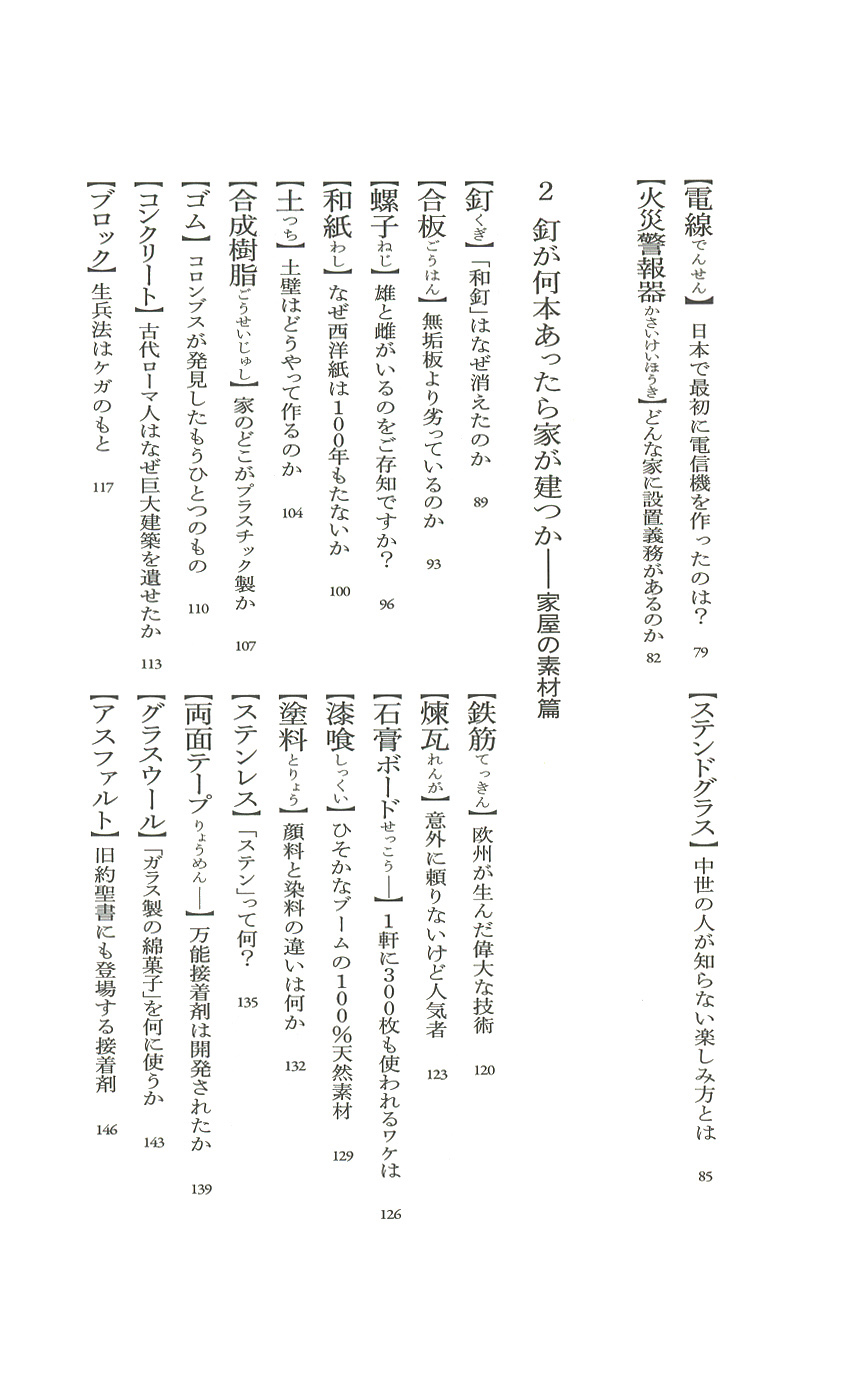 【電線でんせん】日本で最初に電信機を作ったのは？ 79
【火災警報器かさいけいほうき】どんな家に設置義務があるのか 82
【ステンドグラス】中世の人が知らない楽しみ方とは 85
2 釘が何本あったら家が建つか──家屋の素材篇
【釘くぎ】「和釘」はなぜ消えたのか 89
【合板ごうはん】無垢板より劣っているのか 93
【螺子ねじ】雄と雌がいるのをご存知ですか？ 96
【和紙わし】なぜ西洋紙は100年もたないか 100
【土つち】土壁はどうやって作るのか 104
【合成樹脂ごうせいじゅし】家のどこがプラスチック製か 107
【ゴム】コロンブスが発見したもうひとつのもの 110
【コンクリート】古代ローマ人はなぜ巨大建築を遺せたか 113
【ブロック】生兵法はケガのもと 117
【鉄筋てっきん】欧州が生んだ偉大な技術 120
【煉瓦れんが】意外に頼りないけど人気者 123
【石膏ボードせっこう──】1軒に300枚も使われるワケは 126
【漆喰しっくい】ひそかなブームの100％天然素材 129
【塗料とりょう】顔料と染料の違いは何か 132
【ステンレス】「ステン」って何？ 135
【両面テープりょうめん──】万能接着剤は開発されたか 139
【グラスウール】「ガラス製の綿菓子」を何に使うか 143
【アスファルト】旧約聖書にも登場する接着剤 146